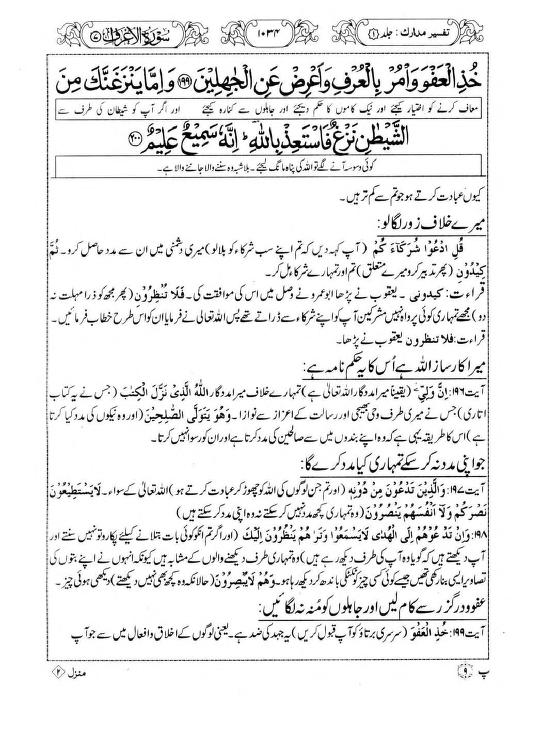 تفسیر مدارک : جلد (۱) ۱۰۳۴ سورة الاعراف ۷
خُذِ الْعَفْوَ وَاْمُرْ بِالْعُرْفِ وَاَعْرِضْ عَنِ الْجٰهِلِيْنَ ۱۹۹ وَاِمَّا يَنْزَغَنَّكَ مِنَ
معاف کرنے کو اختیار کیجئے اور نیک کاموں کا حکم دیجئے اور جاہلوں سے کنارہ کیجئے اور اگر آپ کو شیطان کی طرف سے
الشَّيْطٰنِ نَزْغٌ فَاسْتَعِذْ بِاللّٰهِ ؕ اِنَّهٗ سَمِيْعٌ عَلِيْمٌ ۲۰۰
کوئی وسوسہ آنے لگے تو اللہ کی پناہ مانگ لیجئے ۔ بلاشبہ وہ سننے والا جاننے والا ہے ۔
کیوں عبادت کرتے ہو جو تم سے کم تر ہیں ۔
میرے خلاف زور لگالو:
قُلِ ادْعُوْا شُرَكَآءَ كُمْ (آپ کہہ دیں کہ تم اپنے سب شرکاء کو بلالو) میری دشمنی میں ان سے مدد حاصل کرو ۔ ثُمَّ
كِيْدُوْنِ (پھر تدبیر کرو میرے متعلق) تم اور تمہارے شرکاء مل کر ۔
قراءت: کیدونی ۔ یعقوب نے پڑھا ابو عمرو نے وصل میں اس کی موافقت کی ۔ فَلَا تُنْظِرُوْنِ (پھر مجھ کو ذرا مہلت نہ
دو) مجھے تمہاری کوئی پرواہ نہیں مشرکین آپ کو اپنے شرکاء سے ڈراتے تھے پس اللہ تعالیٰ نے فرمایا ان کو اس طرح خطاب فرمائیں ۔
قراءت: فلا تنظرون یعقوب نے پڑھا ۔
میرا کارساز اللہ ہے اُس کا یہ حکم نامہ ہے:
آیت ۱۹۶: اِنَّ وَلِيِّ ےَ (یقیناً میرا مددگار اللہ تعالیٰ ہے) تمہارے خلاف میرا مددگار اللّٰهُ الَّذِىْ نَزَّلَ الْكِتٰبَ (جس نے یہ کتاب
اتاری) جس نے میری طرف وحی بھیجی اور رسالت کے اعزاز سے نوازا ۔ وَهُوَ يَتَوَلَّى الصّٰلِحِيْنَ (اور وہ نیکوں کی مدد کیا کرتا
ہے) اس کا طریقہ یہی ہے کہ وہ اپنے بندوں میں سے صالحین کی مدد کرتا ہے اور ان کو رسوا نہیں کرتا ۔
جو اپنی مدد نہ کر سکے تمہاری کیا مدد کرے گا:
آیت ۱۹۷: وَالَّذِيْنَ تَدْعُوْنَ مِنْ دُوْنِهٖ (اور تم جن لوگوں کی اللہ کو چھوڑ کر عبادت کرتے ہو) اللہ تعالیٰ کے سواء ۔ لَا يَسْتَطِيْعُوْنَ
نَصْرَكُمْ وَلَآ اَنْفُسَهُمْ يَنْصُرُوْنَ (وہ تمہاری کچھ مدد نہیں کر سکتے نہ وہ اپنی مدد کر سکتے ہیں)
۱۹۸: وَاِنْ تَدْعُوْهُمْ اِلَى الْهُدٰى لَا يَسْمَعُوْا وَتَرٰهُمْ يَنْظُرُوْنَ اِلَيْكَ (اور اگر تم انکو کوئی بات بتلانے کیلئے پکارو تو نہیں سنتے اور
آپ دیکھتے ہیں کہ گویا وہ آپ کی طرف دیکھ رہے ہیں) وہ تمہاری طرف دیکھنے والوں کے مشابہ ہیں کیونکہ انہوں نے اپنے بتوں کی
تصاویر ایسی بنا رکھی تھیں جیسے کوئی کسی چیز کو ٹکٹکی باندھ کر دیکھ رہا ہو ۔ وَهُمْ لَا يُبْصِرُوْنَ (حالانکہ وہ کچھ بھی نہیں دیکھتے) دیکھی ہوئی چیز ۔
عفو و درگزر سے کام لیں اور جاہلوں کو مُنہ نہ لگائیں:
آیت ۱۹۹: خُذِ الْعَفْوَ (سرسری برتاؤ کو آپ قبول کریں) یہ جہد کی ضد ہے ۔ یعنی لوگوں کے اخلاق و افعال میں سے جو آپ
پ ۹ منزل ۲